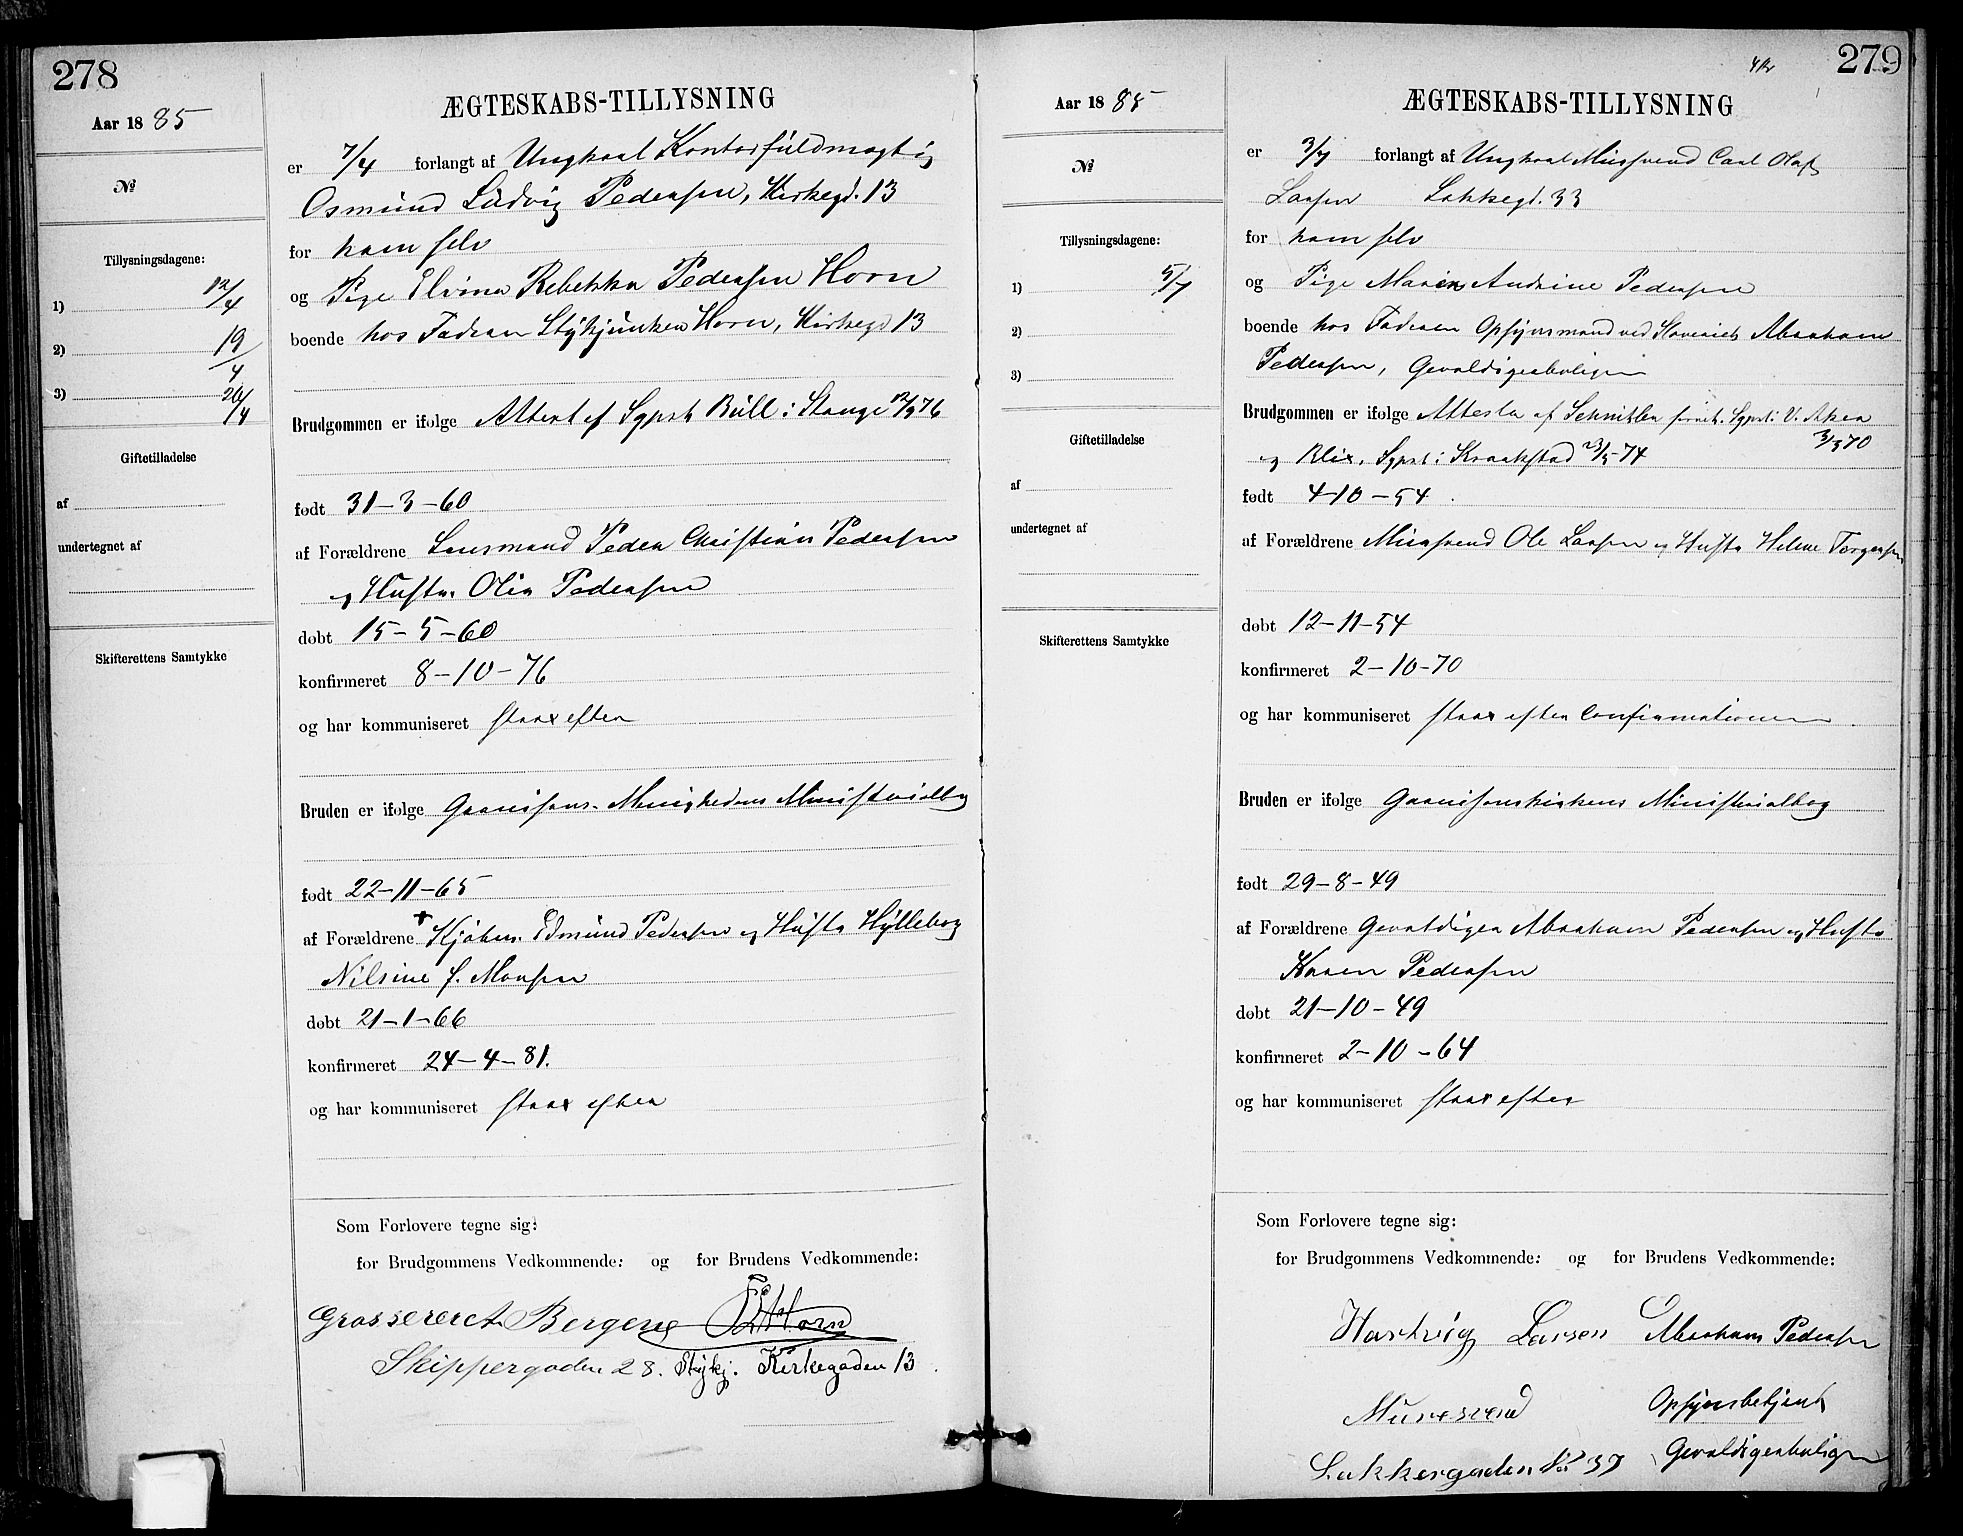 278
Aar 1885
№
Tillysningsdagene:
1) 12/4
2) 19/4
3) 26/4
Giftetilladelse
af
undertegnet af
Skifterettens Samtykke
ÆGTESKABS-TILLYSNING
er 7/4 forlangt af Ungkarl Kontorfuldmægtig
Osmund Ludvig Pedersen, Kirkegd. 13
for ham selv
og Pige Elvina Rebekka Pedersen Horn
boende hos Faderen Stykjunker Horn, Kirkegd 13
Brudgommen er ifølge Attest af Sgpst Bull i Stange 12/9 76
født 31-3-60
af Forældrene Lensmand Peder Christian Pedersen
og Hustru Olia Pedersen
døbt 15-5-60
konfirmeret 8-10-76
og har kommuniseret strax efter
Bruden er ifølge Garnisons-Menighedens Ministerialbog
født 22-11-65
af Forældrene Edmund Pedersen og Hustru Hylleborg
Nilsine f. Monsen
døbt 21-1-66
konfirmeret 24-4-81.
og har kommuniseret strax efter
Som Forlovere tegne sig:
for Brudgommens Vedkommende: og for Brudens Vedkommende:
Grosserer Bergene Horn
Skippergaden 28. Stykj. Kirkegaden 13
279
Aar 1885
№
Tillysningsdagene:
1) 5/7
2)
3)
Giftetilladelse
af
undertegnet af
Skifterettens Samtykke
ÆGTESKABS-TILLYSNING
er 3/7 forlangt af Ungkarl Mursvend Carl Olaf
Larsen Lakkegd. 33
for ham selv
og Pige Maren Andrine Pedersen
boende hos Faderen Opsynsmand ved Slaveriet Abraham
Pedersen, Gevaldigerboligen
Brudgommen er ifølge Attester af Schnitler Sgpst i V. Aker 3/3 70
og Blix, Sgpst i Kraakstad 23/5-74
født 4-10-54.
af Forældrene Mursvend Ole Larsen og Hustru Helene Torgersen
døbt 12-11-54
konfirmeret 2-10-70
og har kommuniseret strax efter Confirmationen
Bruden er ifølge Garnisonskirkens Ministerialbog
født 29-8-49
af Forældrene Gevaldiger Abraham Pedersen og Hustru
Karen Pedersen
døbt 21-10-49
konfirmeret 2-10-64
og har kommuniseret strax efter
Som Forlovere tegne sig:
for Brudgommens Vedkommende: og for Brudens Vedkommende:
Hartvig Larsen Abraham Pedersen
Mursvend Opsynsbetjent
Lakkergaden No 37 Gevaldigerboligen